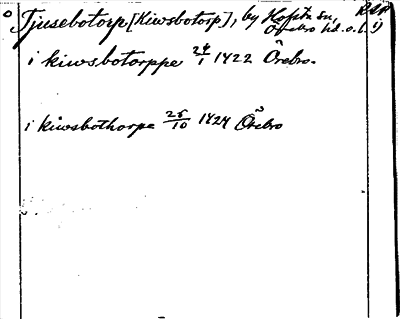 Tjusebotorp [Kiwsbotorp], by
Örebro hd. o. l.
i kiwsbotorppe 24/1 1422 Örebro.
i kiwsbothorpe 25/10 1424 Örebro